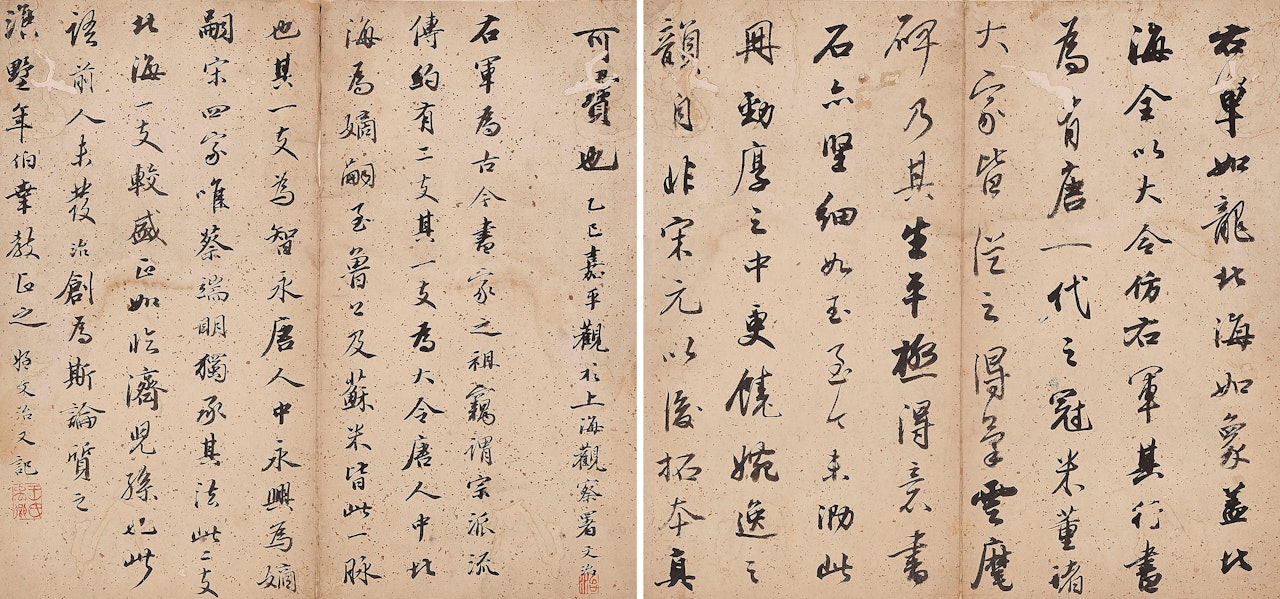 右軍如龍北海如象蓋北
海全以大令仿右軍其行書
為有唐一代之冠米董諸
大家皆從之得筆雲麾
碑乃其生平極得意書
石亦堅細如玉至今未泐此
冊勁厚之中更饒婉逸之
韻自非宋元以後拓本真
可寶也 乙巳嘉平觀於上海觀察署文治
右軍為古今書家之祖竊謂宗派流
傳約有二支其一支為大令唐人中北
海為嫡嗣至魯公及蘇米皆此一脈
也其一支為智永唐人中永興為嫡
嗣宋四家唯蔡端明猶承其法此二支
北海一支較盛正如臨濟兒孫也此
語前人未發治創為斯論質之
墅年伯幸教正之 文治又記